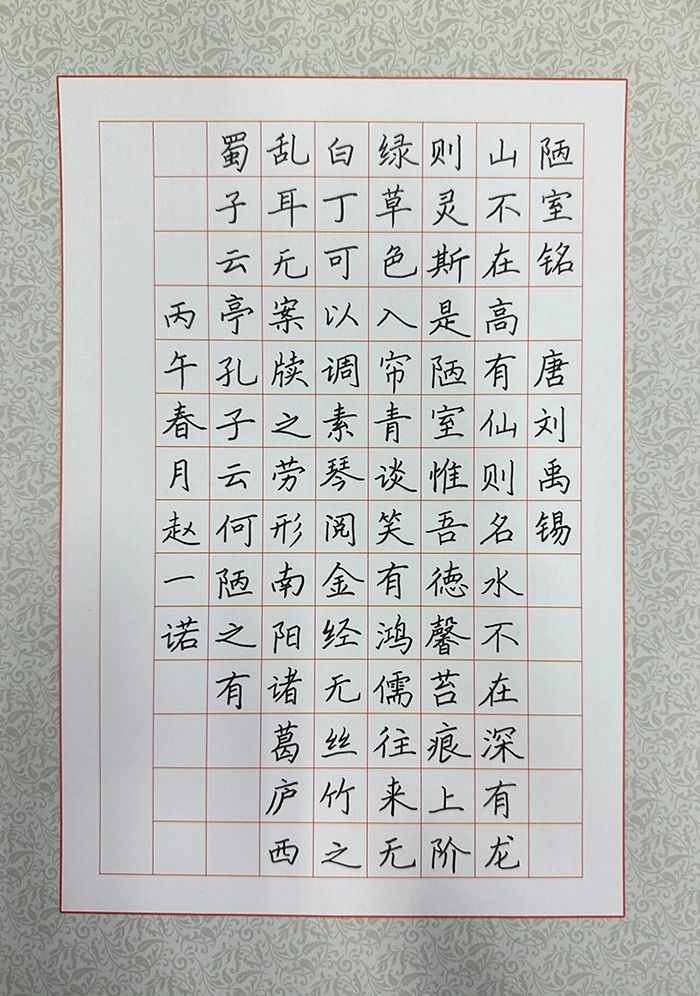 陋室铭 唐刘禹锡
山不在高有仙则名水不在深有龙
则灵斯是陋室惟吾德馨苔痕上阶
绿草色入帘青谈笑有鸿儒往来无
白丁可以调素琴阅金经无丝竹之
乱耳无案牍之劳形南阳诸葛庐西
蜀子云亭孔子云何陋之有
丙午春月赵一诺